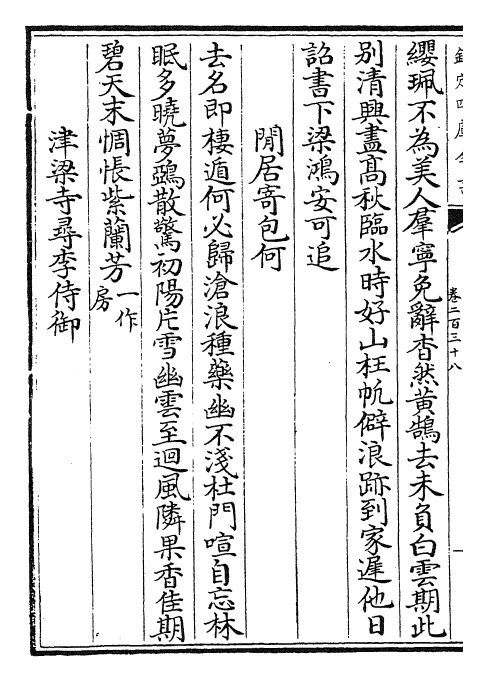 欽定四庫全書
卷二百三十八
纓珮不為美人羣寧免辭杳然黄鵠去未負白雲期此
别清興盡髙秋臨水時好山枉帆僻浪跡到家遲他日
詔書下梁鴻安可追
閒居寄包何
去名即棲遁何必歸滄浪種藥幽不淺杜門喧自忘林
眠多曉夢鵶散驚初陽片雪幽雲至迴風隣果香佳期
碧天末惆悵紫蘭芳一作房
津梁寺尋李侍御